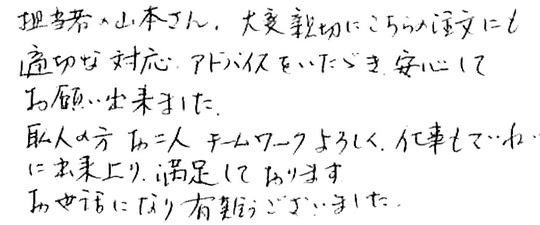 担当者の山本さん、大変親切にこちらの注文にも
適切な対応、アドバイスをいただき、安心して
お願い出来ました。
職人の方お二人チームワークよろしく、仕事もていねい
に出来上り、満足しております
お世話になり有難うございました。